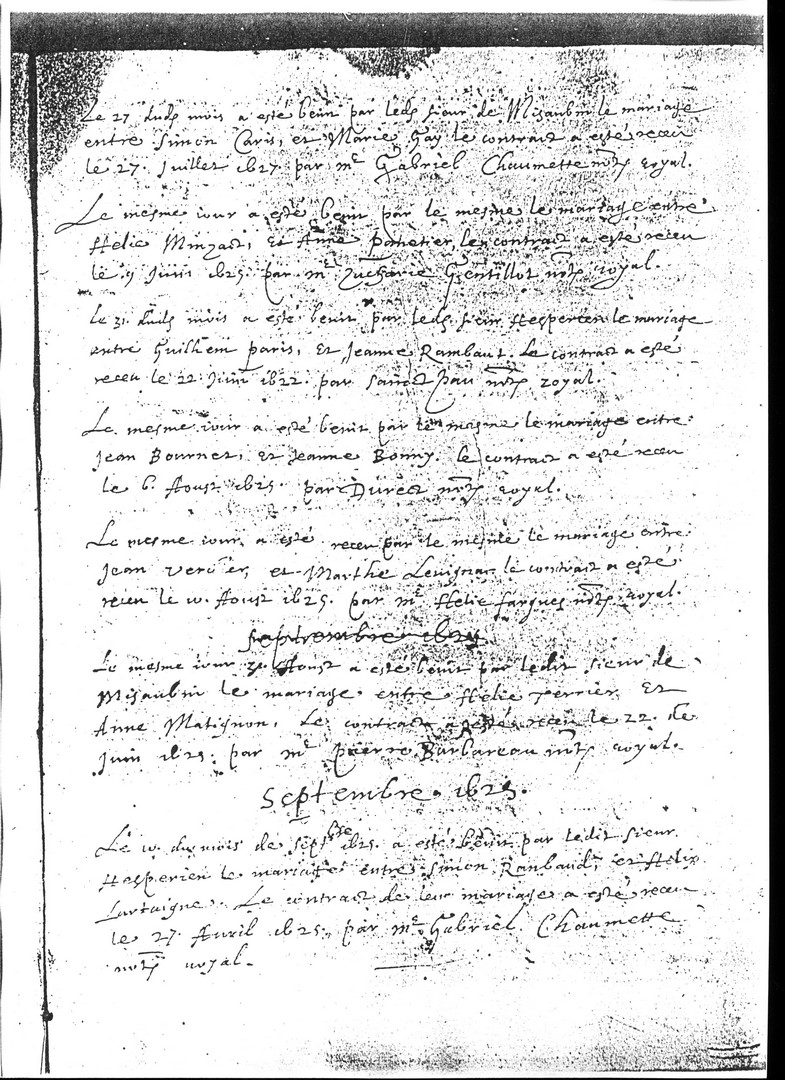 Le 27 dudt mois a esté benit par ledt sieur de Misaubin le mariage
entre Simon Caris, et Marie Gay le contract a esté receu
le 27. Juillet 1627. par me Gabriel Chaumette notre royal.
Le mesme iour a esté benit par le mesme le mariage entre
Helie et Anne le contract a esté receu
le 9 Juin 1625. par me Zacharie Gentillot notre royal.
Le 31. dudt mois a esté benit par ledt sieur Hesperien le mariage
entre Guilhem Paris, et Jeanne Rambaut. Le contract a esté
receu le 22 Juin 1622. par notre royal.
Le mesme iour a esté benit par le mesme le mariage entre
Jean Bournet, et Jeanne Bonny. le contract a esté receu
le 6. Aoust 1625. par Durect notre royal.
Le mesme iour, a esté receu par le mesme le mariage entre
Jean et Marthe le contract a esté
receu le 10. Aoust 1625. par me Helie Fargues notre royal.
Septembre 1625
Le mesme iour 31 Aoust a esté benit par ledit sieur de
Misaubin le mariage entre Helie Perrier et
Anne Matignon, Le contract a esté receu le 22. de
Juin 1625. par me Pierre Barbareau notre royal.
Septembre. 1625.
Le 10. du mois de Septbre 1625. a esté benit par ledit sieur
Hesperien le mariage entre Simon Ranbaud, et Helix
Lartaigue. Le contract de leur mariage a esté receu
le 27 Auril 1625, par me Gabriel Chaumette
notre royal.